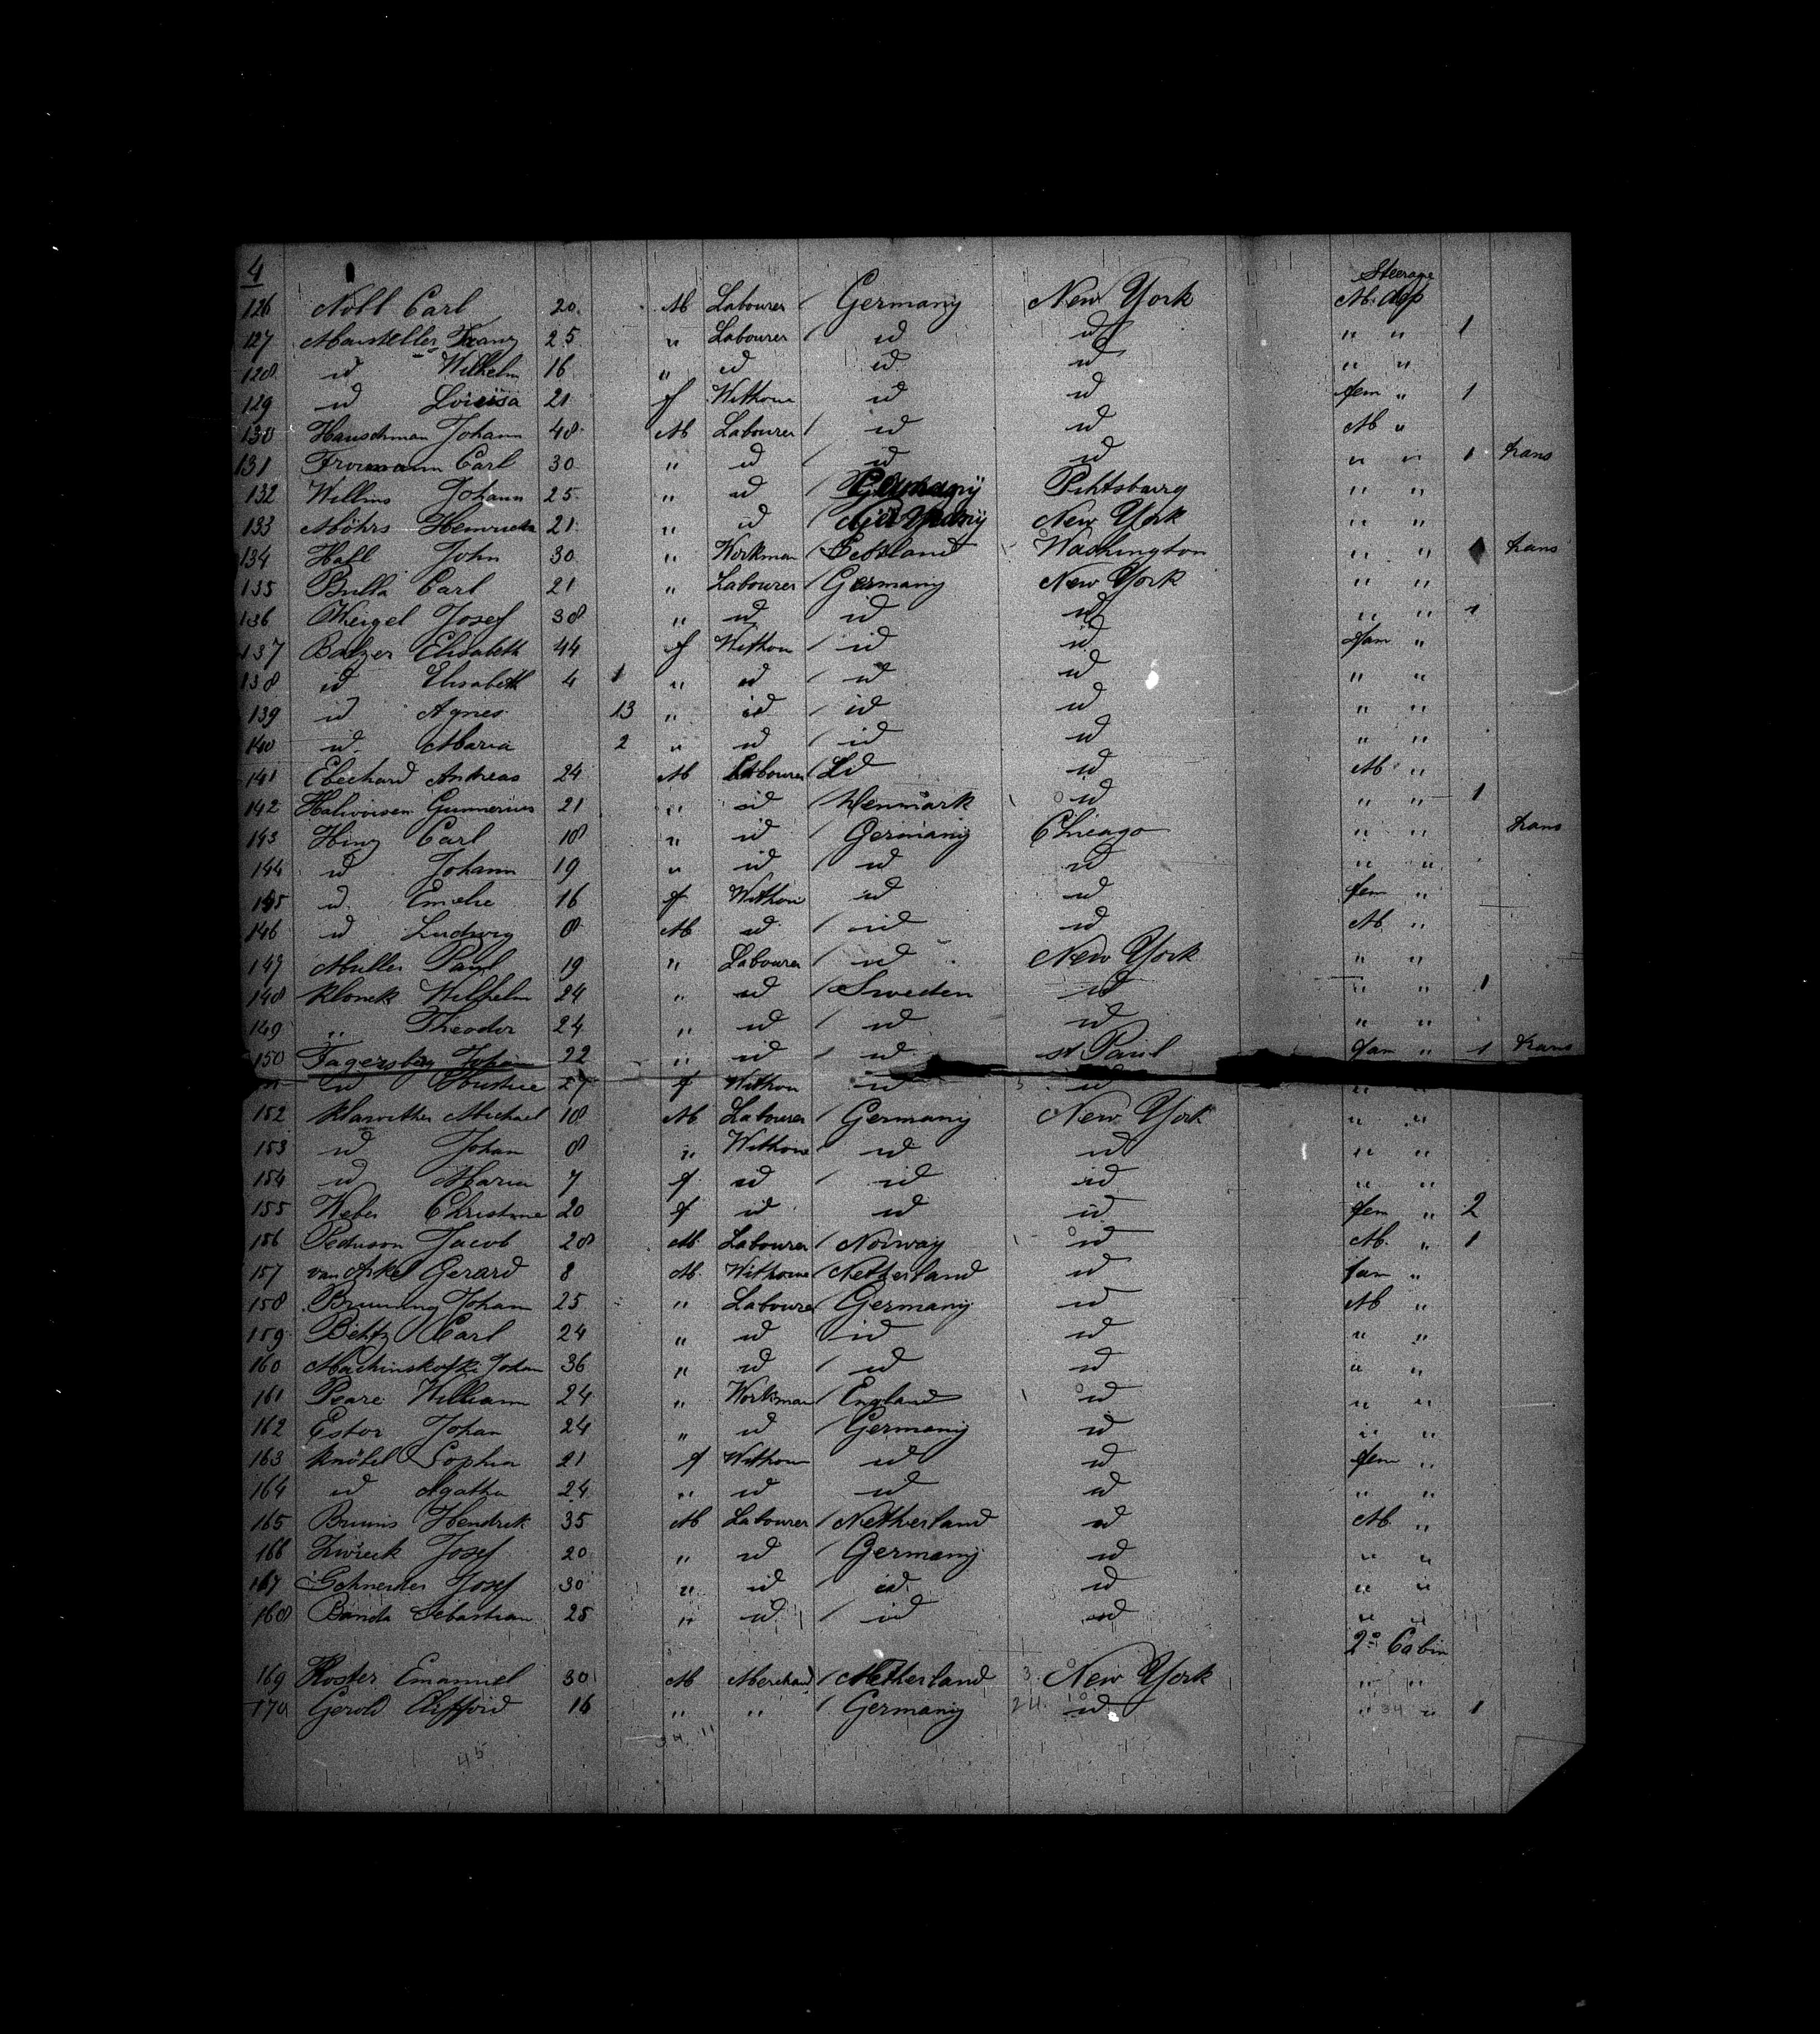 4
Steerage
126 Nöll Carl 20 M Labourer / Germany New York M. dep
127 Mansteller Franz 25 " Labourer / id id " " 1
128 id Wilhelm 16 " id id id " "
129 id Louisa 21 f Withou id id fem " 1
130 Hauschman Johann 48 M Labourer / id id M "
131 Fromann Carl 30 " id / id id " " 1 trans
132 Willms Johann 25 " id / Germany Pihtsburg " "
133 Möhrs Heinrich 21 " id / Germany New York " "
134 Hall John 30 " Workman / Washington " " trans
135 Bulla Carl 21 " Labourer / Germany New York " "
136 Weigel Josef 38 " id / id id " " 1
137 Balzer Elisabeth 44 f Withou / id id fam "
138 id Elisabeth 4 1 " id / id id " "
139 id Agnes 13 " id / id id " "
140 id Maria 2 " id / id id " "
141 Andreas 24 M Labourer / id id M "
142 Halvorsen Gunnerius 21 " id / Denmark id " " 1
143 Hinz Carl 18 " id / Germany Chicago " " trans
144 id Johann 19 " id / id id " "
145 id Emilie 16 f Withou id id fem "
146 id Ludwig 8 M id / id id M "
147 Muller Paul 19 " Labourer / id New York " "
148 Klonek Wilhelm 24 " id / Sweden id " " 1
149 " Theodor 24 " id / id id " "
150 Johan 22 " id / id st Paul fam " 1 trans
id 27 f Withou id id " "
152 Michael 18 M Labourer / Germany New York " "
153 id Johan 8 " Withou / id id " "
154 id Maria 7 f id / id id " "
155 Weber Christine 20 f id id id fem " 2
156 Jacob 28 M Labourer / Norway id M. " 1
157 van Arkel Gerard 8 M. Withou / Netherland id fam "
158 Bruning Johan 25 " Labourer / Germany id M "
159 Carl 24 " id id id " "
160 Johan 36 " id / id id " "
161 Peare William 24 " Workman / England id " "
162 Ester Johan 24 " id / Germany id " "
163 Knöbel Sophia 21 f Withou id id fem "
164 id Agatha 24 " id / id id " "
165 Bruins Hendrik 35 M Labourer / Netherland id M "
166 Josef 20 " id / Germany id " "
167 Schneider Josef 30 " id / id id " "
168 Banda Sebastian 25 " id / id id " "
2e Cabin
169 Koster Emanuel 30 M Merchand / Netherland 3 New York " "
170 Gerold Clifford 16 " " / Germany 24 id " 34 " 1
34 11
45